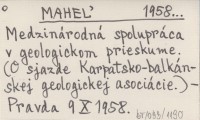 MAHEĽ 1958...
Medzinárodná spolupráca
v geologickom prieskume.
(O sjazde Karpatsko-balkán-
skej geologickej asociácie.) -
Pravda 9 X 1958.
br/093/1190